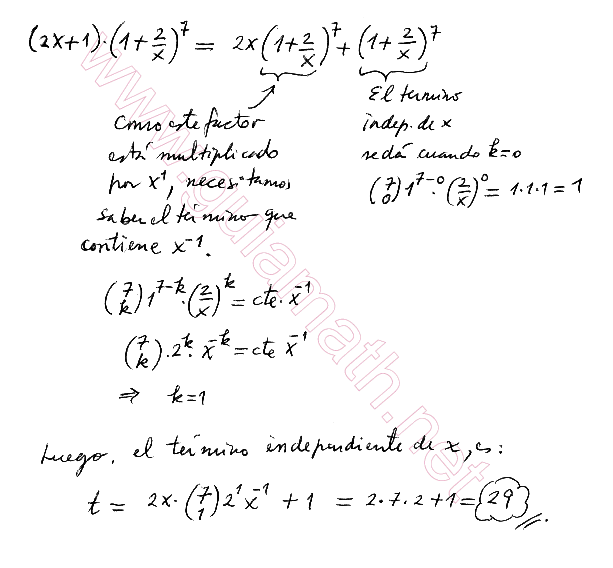 (2x+1)·(1+2/x)^7 = 2x(1+2/x)^7 + (1+2/x)^7
Como este factor
está multiplicado
por x^1, necesitamos
saber el término que
contiene x^-1.
El termino
indep. de x
se dá cuando k=0
(7 0) 1^7-0 · (2/x)^0 = 1·1·1 = 1
(7 k) 1^7-k · (2/x)^k = cte · x^-1
(7 k) · 2^k · x^-k = cte x^-1
⇒ k=1
Luego, el término independiente de x, es:
t = 2x · (7 1) 2^1 x^-1 + 1 = 2·7·2+1 = 29
www.guiamath.net